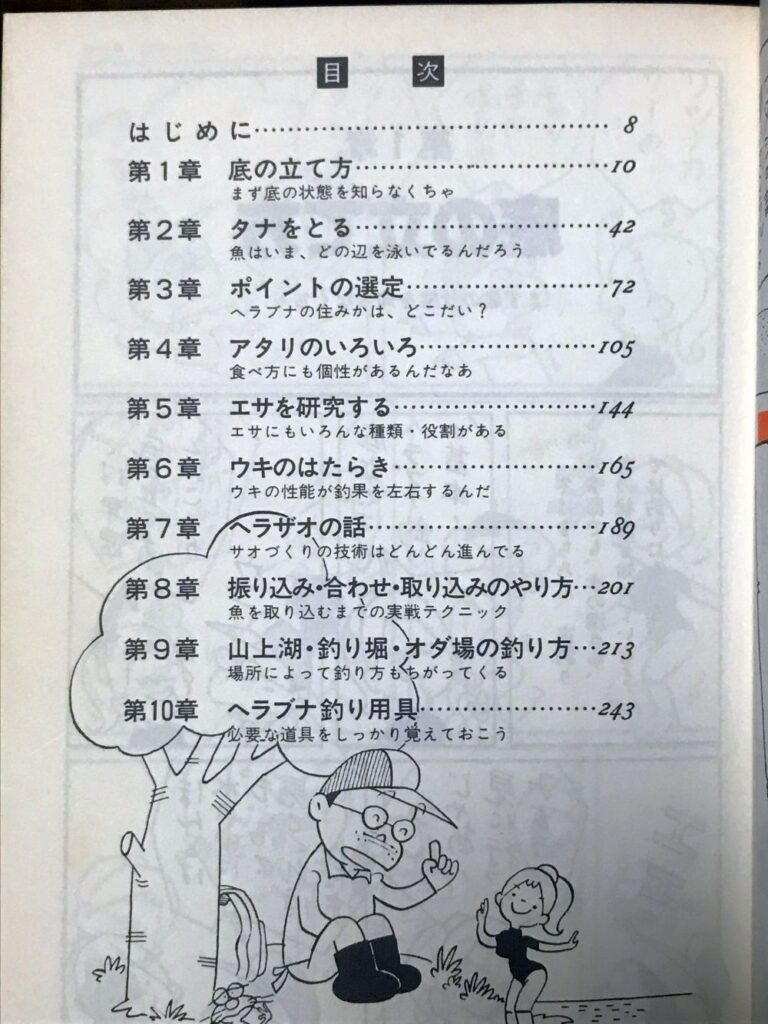 目 次
はじめに…………………………………… 8
第1章 底の立て方…………………………10
まず底の状態を知らなくちゃ
第2章 タナをとる…………………………42
魚はいま、どの辺を泳いでるんだろう
第3章 ポイントの選定……………………72
ヘラブナの住みかは、どこだい?
第4章 アタリのいろいろ…………………105
食べ方にも個性があるんだなあ
第5章 エサを研究する……………………144
エサにもいろんな種類・役割がある
第6章 ウキのはたらき……………………165
ウキの性能が釣果を左右するんだ
第7章 ヘラザオの話………………………189
サオづくりの技術はどんどん進んでる
第8章 振り込み・合わせ・取り込みのやり方…201
魚を取り込むまでの実戦テクニック
第9章 山上湖・釣り堀・オダ場の釣り方…213
場所によって釣り方もちがってくる
第10章 ヘラブナ釣り用具…………………243
必要な道具をしっかり覚えておこう